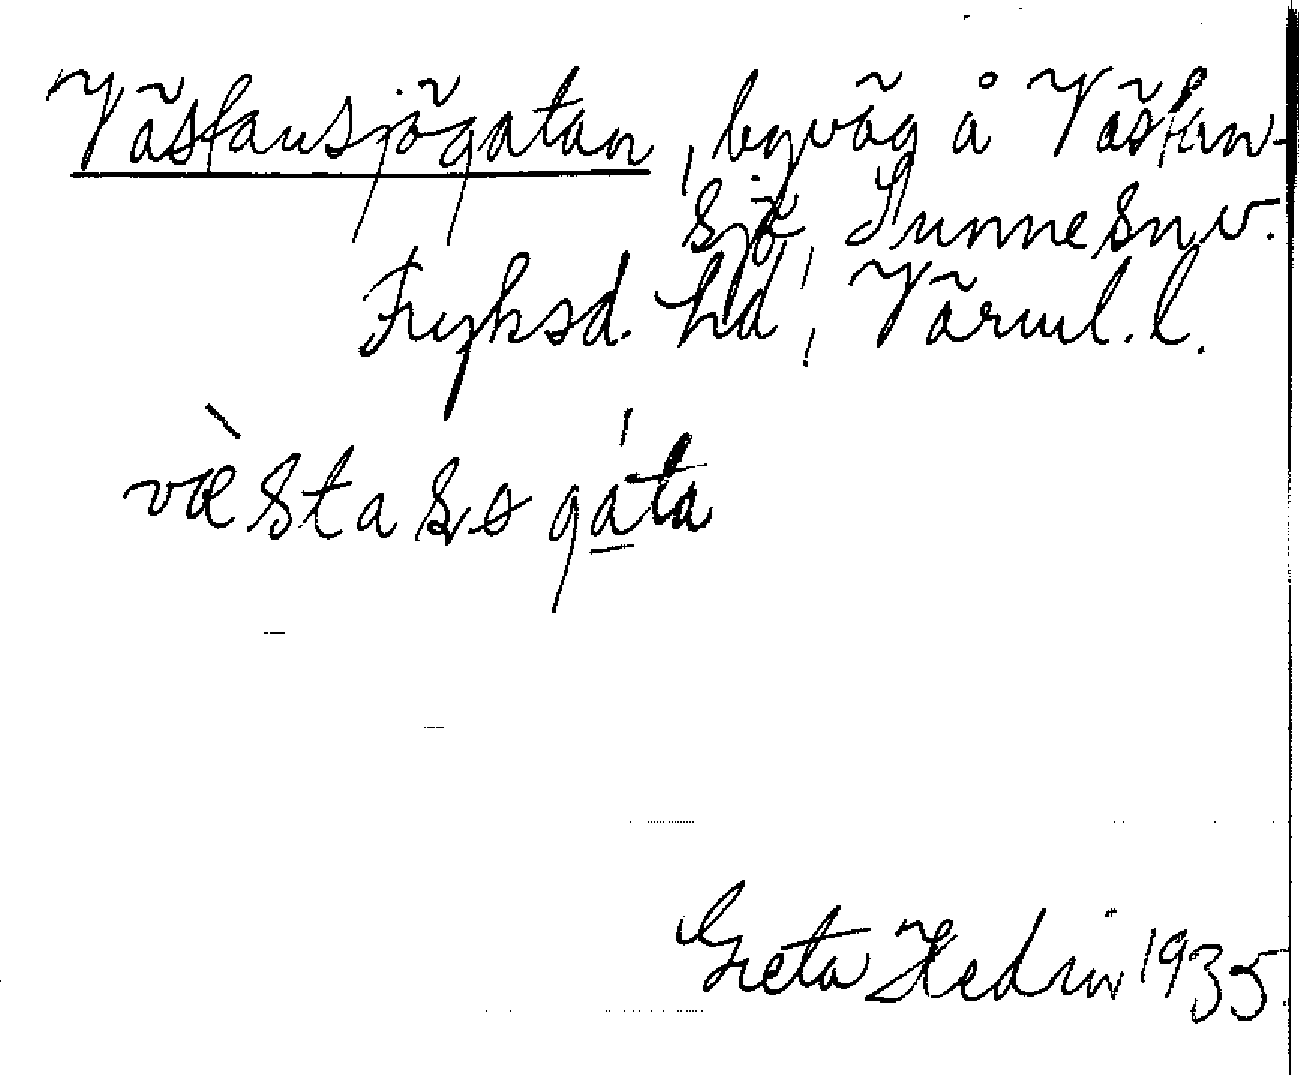 Västansjögatan, byväg å Västan-
sjö, Sunne sn v.
Fryksd. hd, Värml. l.
væstassgáta
Greta Hedin 1935.